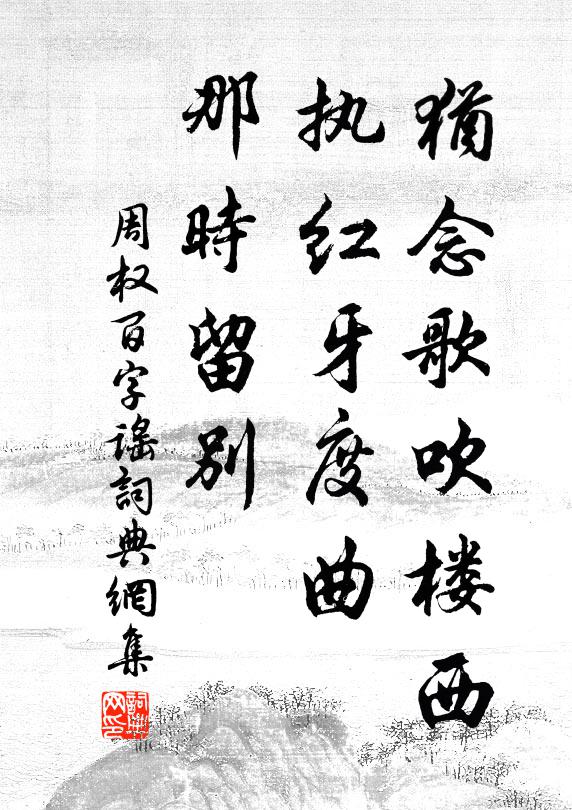 猶念歌吹楼西
执红牙度曲
那時留別
周权百字謠詞典網集